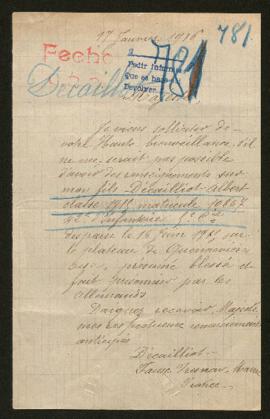 781.
17 Janvier 1916
Fecho
781
Pedir informes
que se hagan
Devolver
Décailliot
Je viens solliciter de
votre Haute bienveillance, s'il
ne me serait pas possible
d'avoir des renseignements sur
mon fils Décailliot Albert
classe 1911 matricule
d'Infanterie
disparu le 16 Juin 1915 sur
le plateau de Quennevières
présumé blessé et
fait prisonnier par les
Allemands
Daignez recevoir, Majesté,
mes respectueux remerciements
anticipés
Décailliot
Marne
France